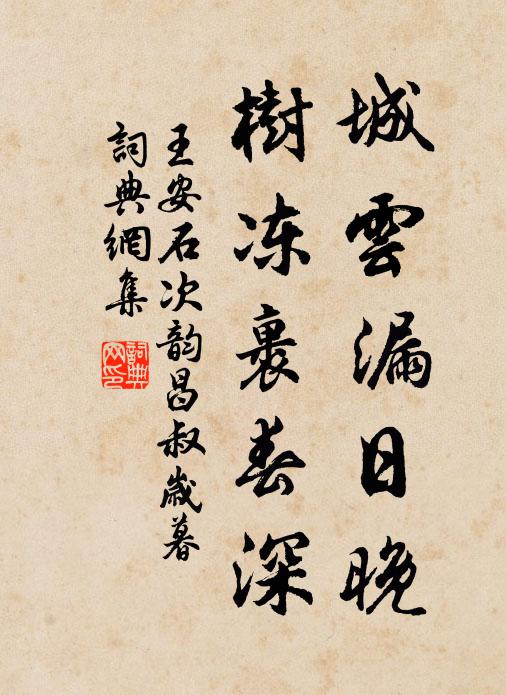 城雲漏日晚
樹冻裹春深
王安石次韵昌叔歲暮
詞典網集
詞典网印